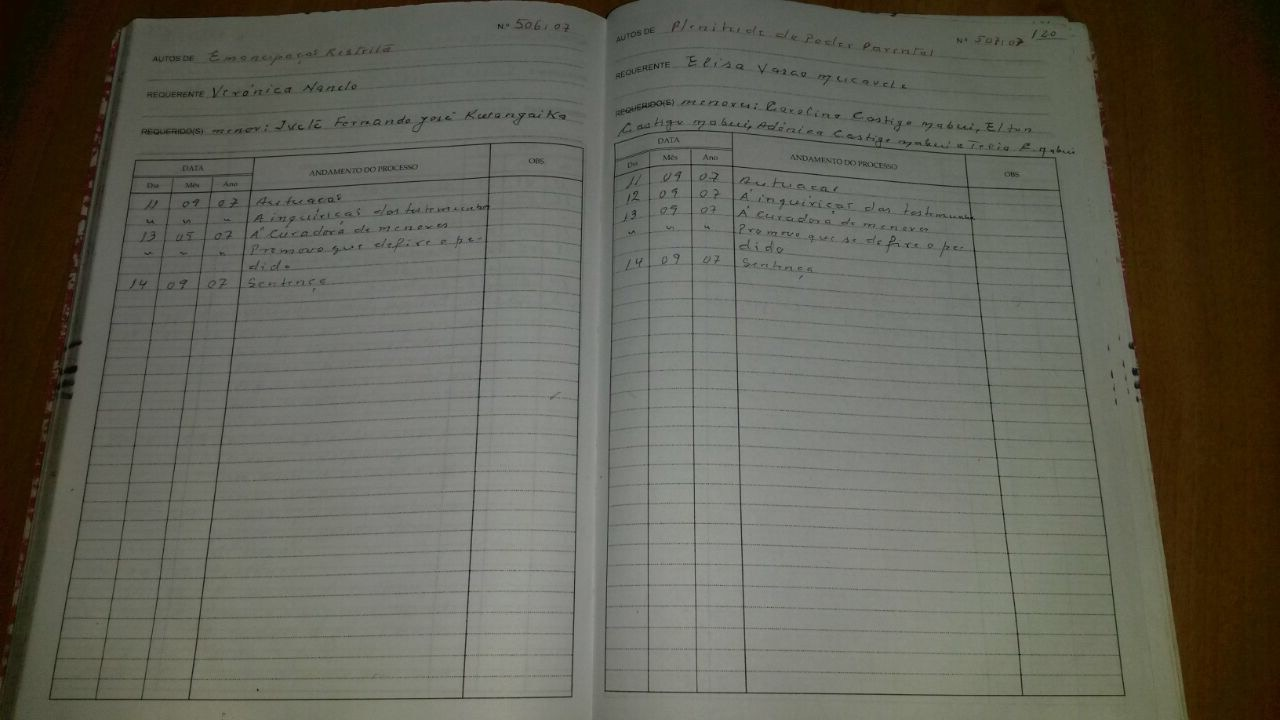 Nº 506/07
AUTOS DE Emancipaçaõ Restrita
REQUERENTE Verónica Nando
REQUERIDO(S) menor: Ivete Fernando José Kulangaika
DATA
Dia Mês Ano ANDAMENTO DO PROCESSO OBS.
11 09 07 Autuaçaõ
" " " A inquiriçaõ das testemunhas
13 09 07 Á Curadora de menores
" " " Promovo que defire o pe-
dido
14 09 07 Sentença
120
AUTOS DE Plenitude de Poder Parental Nº 507/07
REQUERENTE Elisa Vasco Mucavele
REQUERIDO(S) menores: Carolina Castigo mabui, Elton
Castigo mabui, Adénica Castigo mabui e
DATA
Dia Mês Ano ANDAMENTO DO PROCESSO OBS.
11 09 07 Autuaçaõ
12 09 07 A inquiriçaõ das testemunhas
13 09 07 Á Curadora de menores
" " " Promovo que se defire o pe-
dido
14 09 07 Sentença